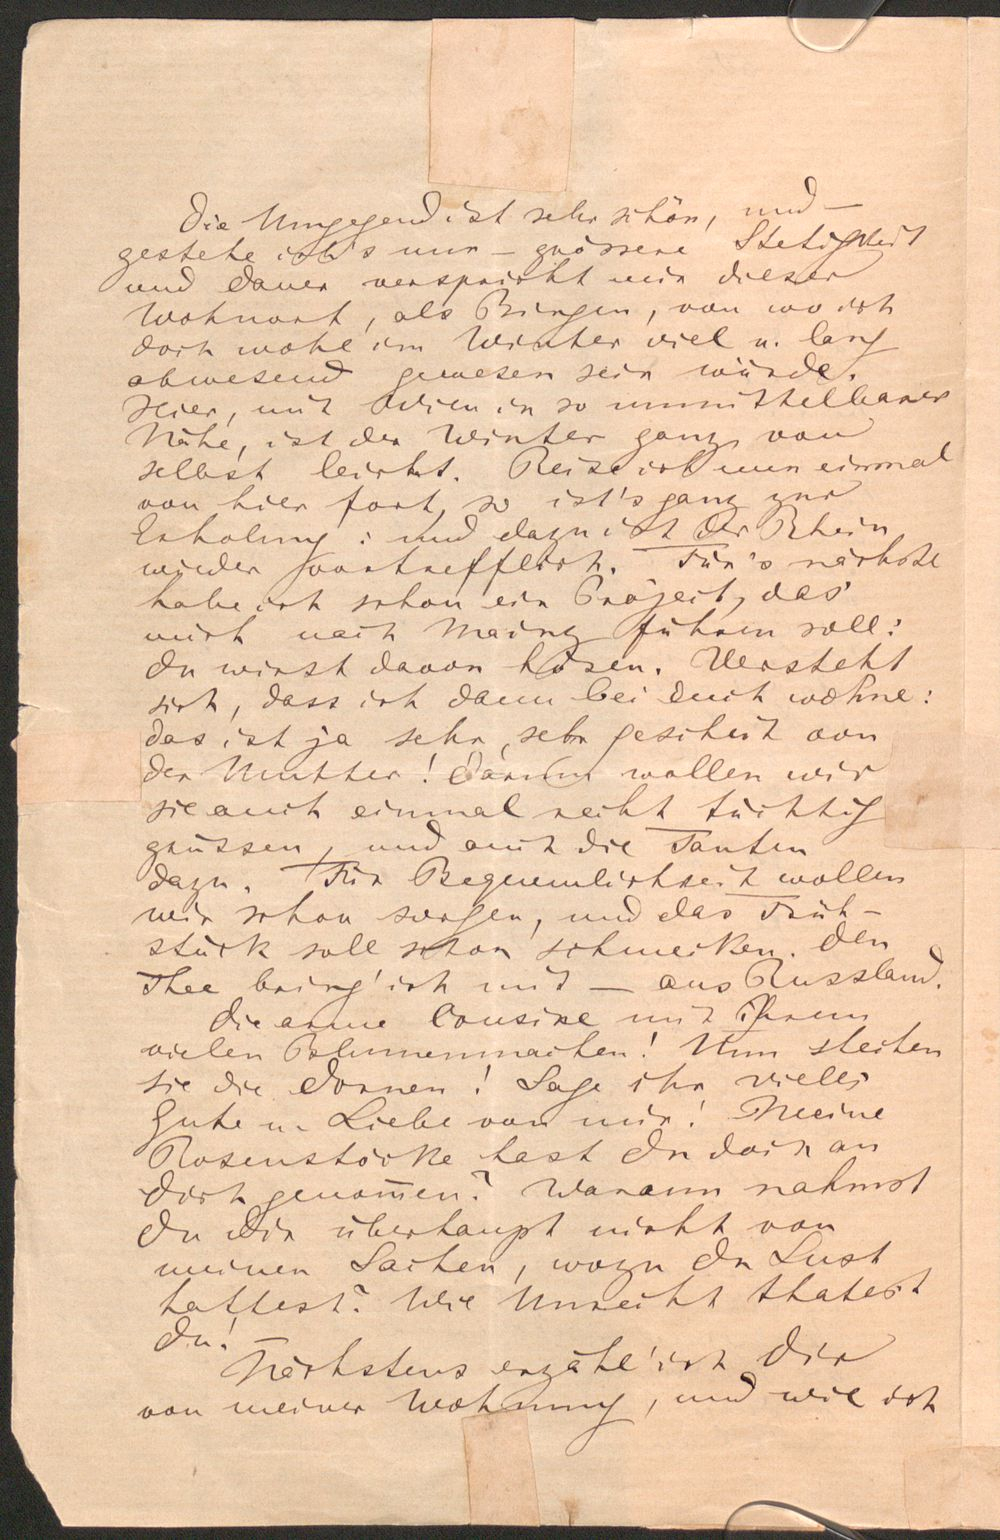 Die Umgegend ist sehr schön, und —
gestehe ich's nur — grössere Stetigkeit
und Dauer verspricht mir dieser
Wohnort, als Bingen, von wo ich
doch wohl im Winter viel u. lang
abwesend gewesen sein würde.
Hier, mit Wien in so unmittelbarer
Nähe, ist der Winter ganz von
selbst leicht. Reise ich nun einmal
von hier fort, so ist's ganz zur
Erholung: und dazu ist der Rhein
wieder vortrefflich. Für's nächste
habe ich schon ein Project, das
mich nach Mainz führen soll:
du wirst davon hören. Versteht
sich, dass ich dann bei Euch wohne:
das ist ja sehr, sehr gescheit von
der Mutter! Darum wollen wir
sie auch einmal recht tüchtig
grüssen, und auch die Tanten
dazu. Für Bequemlichkeit wollen
wir schon sorgen, und das Früh-
stück soll schon schmecken. Den
Thee bring' ich mit — aus Russland.
Die arme Cousine mit ihrem
vielen Blumenmachen! Nun stechen
sie die Dornen! Sage ihr vieles
Gute u. Liebe von mir! Meine
Rosenstöcke hast du doch an
dich genom̅en? Warum nahmst
du dir überhaupt nicht von
meinen Sachen, wozu du Lust
hattest? Wie Unrecht thatest
du!
Nächstens erzähl' ich dir
von meiner Wohnung, und wie ich